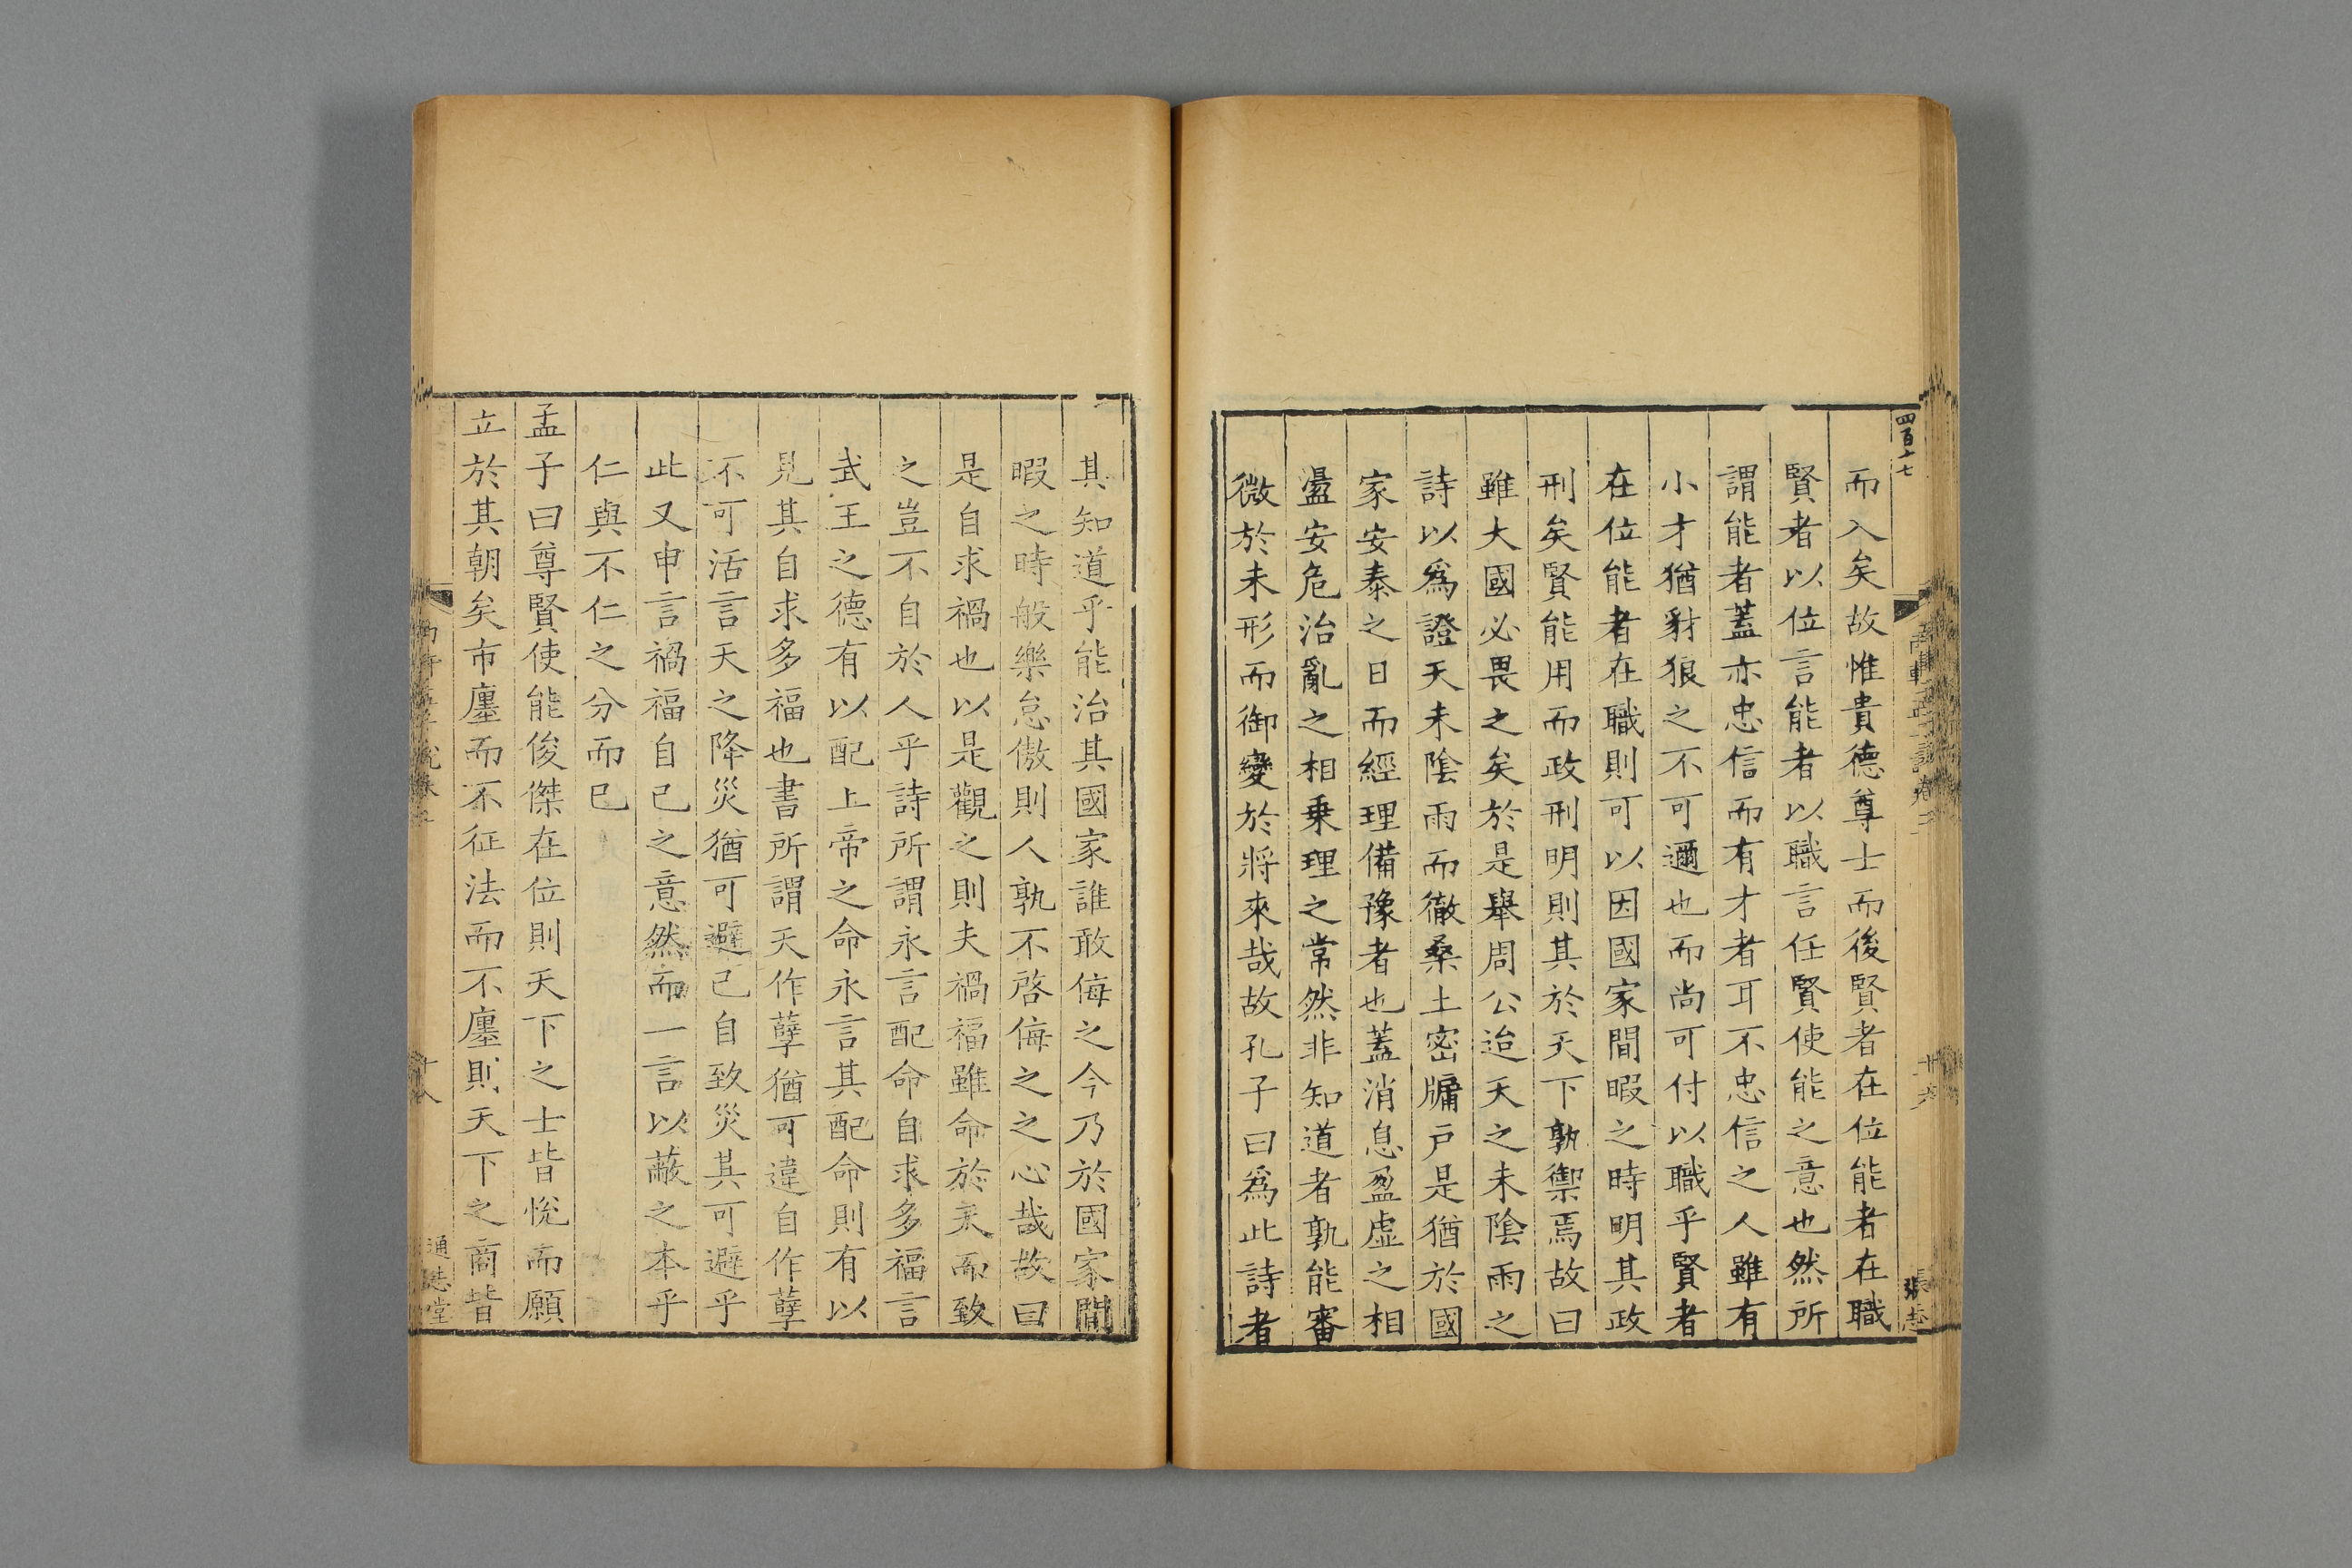 四百十七
而入矣故惟貴德尊士而後賢者在位能者在職
賢者以位言能者以職言任賢使能之意也然所
謂能者蓋亦忠信而有才者耳不忠信之人雖有
小才猶豺狼之不可邇也而尚可付以職乎賢者
在位能者在職則可以因國家閒暇之時明其政
刑矣賢能用而政刑明則其於天下孰禦焉故曰
雖大國必畏之矣於是舉周公迨天之未陰雨之
詩以爲證天未陰雨而徹桑土密牖戸是猶於國
家安泰之日而經理備豫者也蓋消息盈虛之相
盪安危治亂之相乗理之常然非知道者孰能審
微於未形而御變於將來哉故孔子曰爲此詩者
其知道乎能治其國家誰敢侮之今乃於國家閒
暇之時般樂怠傲則人孰不啓侮之之心哉故曰
是自求禍也以是觀之則夫禍福雖命於天而致
之豈不自於人乎詩所謂永言配命自求多福言
武王之德有以配上帝之命永言其配命則有以
見其自求多福也書所謂天作孽猶可違自作孽
不可活言天之降災猶可避己自致災其可避乎
此又申言禍福自己之意然而一言以蔽之本乎
仁與不仁之分而已
孟子曰尊賢使能俊傑在位則天下之士皆悅而願
立於其朝矣市廛而不征法而不廛則天下之商皆
十八
通志堂